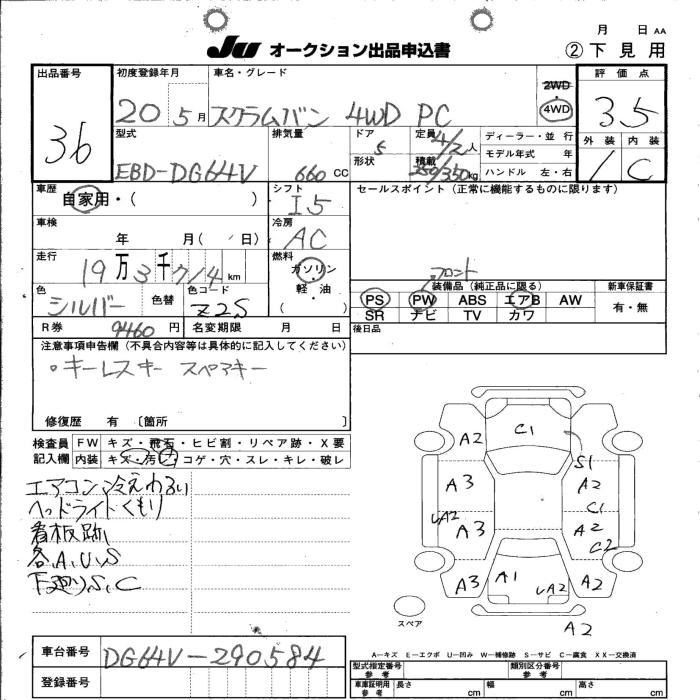 月 日 AA
JU オークション出品申込書 ②下見用
出品番号 36
初度登録年月 20 5月
車名・グレード スクラムバン 4WD PC
2WD 4WD
評価点 3.5
外装 内装
/ C
型式 EBD-DG64V
排気量 660 CC
ドア 5
形状
定員 4/2人
積載 250/350kg
ディーラー・並行
モデル年式 年
ハンドル 左・右
車歴 自家用・( )
シフト I5
セールスポイント(正常に機能するものに限ります)
車検 年 月( 日)
冷房 AC
走行 19万3千714km
燃料 ガソリン 軽・油 ( )
色 シルバー 色替 色コード Z2S
フロント
装備品(純正品に限る) 新車保証書
PS PW ABS エアB AW 有・無
SR ナビ TV カワ
R券 9460円 名変期限 月 日
後日品
注意事項申告欄(不具合内容等は具体的に記入してください)
・キーレスキー スペアキー
修復歴 有 〔箇所 〕
検査員記入欄 FW キズ・飛石・ヒビ割・リペア跡・X要
内装 キズ・汚れ・コゲ・穴・スレ・キレ・破レ
エアコン冷えわるい
ヘッドライトくもり
看板跡
各、A、U、S
下廻りS、C
C1
A2
S1
A3 A2
C1
UA2 A3 A2
C2
A3 A1 UA2 A2
スペア
A2
A-キズ E-エクボ U-凹み W-補修跡 S-サビ C-腐食 XX-交換済
車台番号 DG64V-290584
登録番号
型式指定番号 参考 類別区分番号 参考
車庫証明用 参考 長さ cm 幅 cm 高さ cm